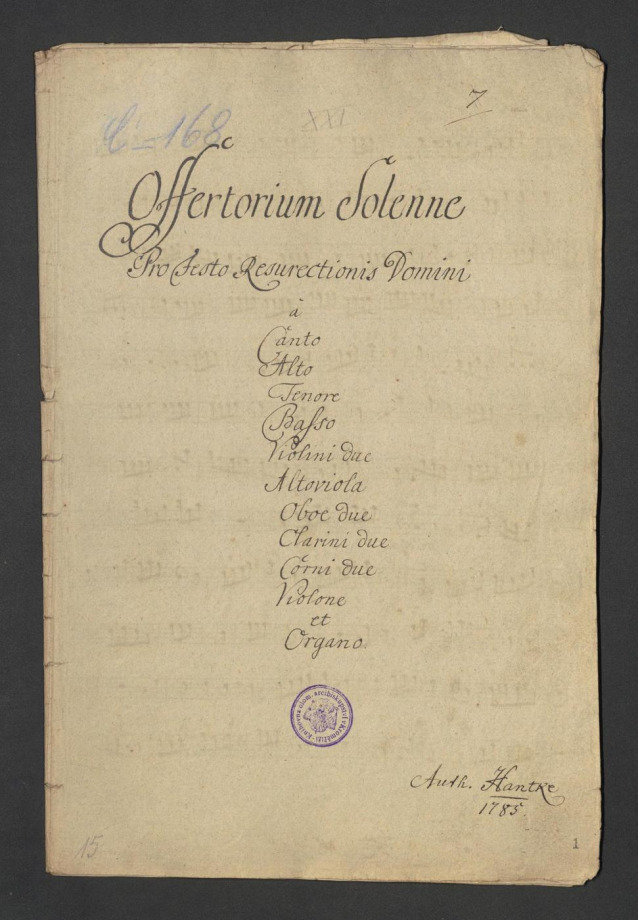 7
C 168
XXI
Offertorium Solenne
Pro Festo Resurectionis Domini
à
Canto
Alto
Tenore
Baſso
Violini due
Altoviola
Oboe due
Clarini due
Corni due
Violone
et
Organo.
Auth. Hantke
1785.
15
1